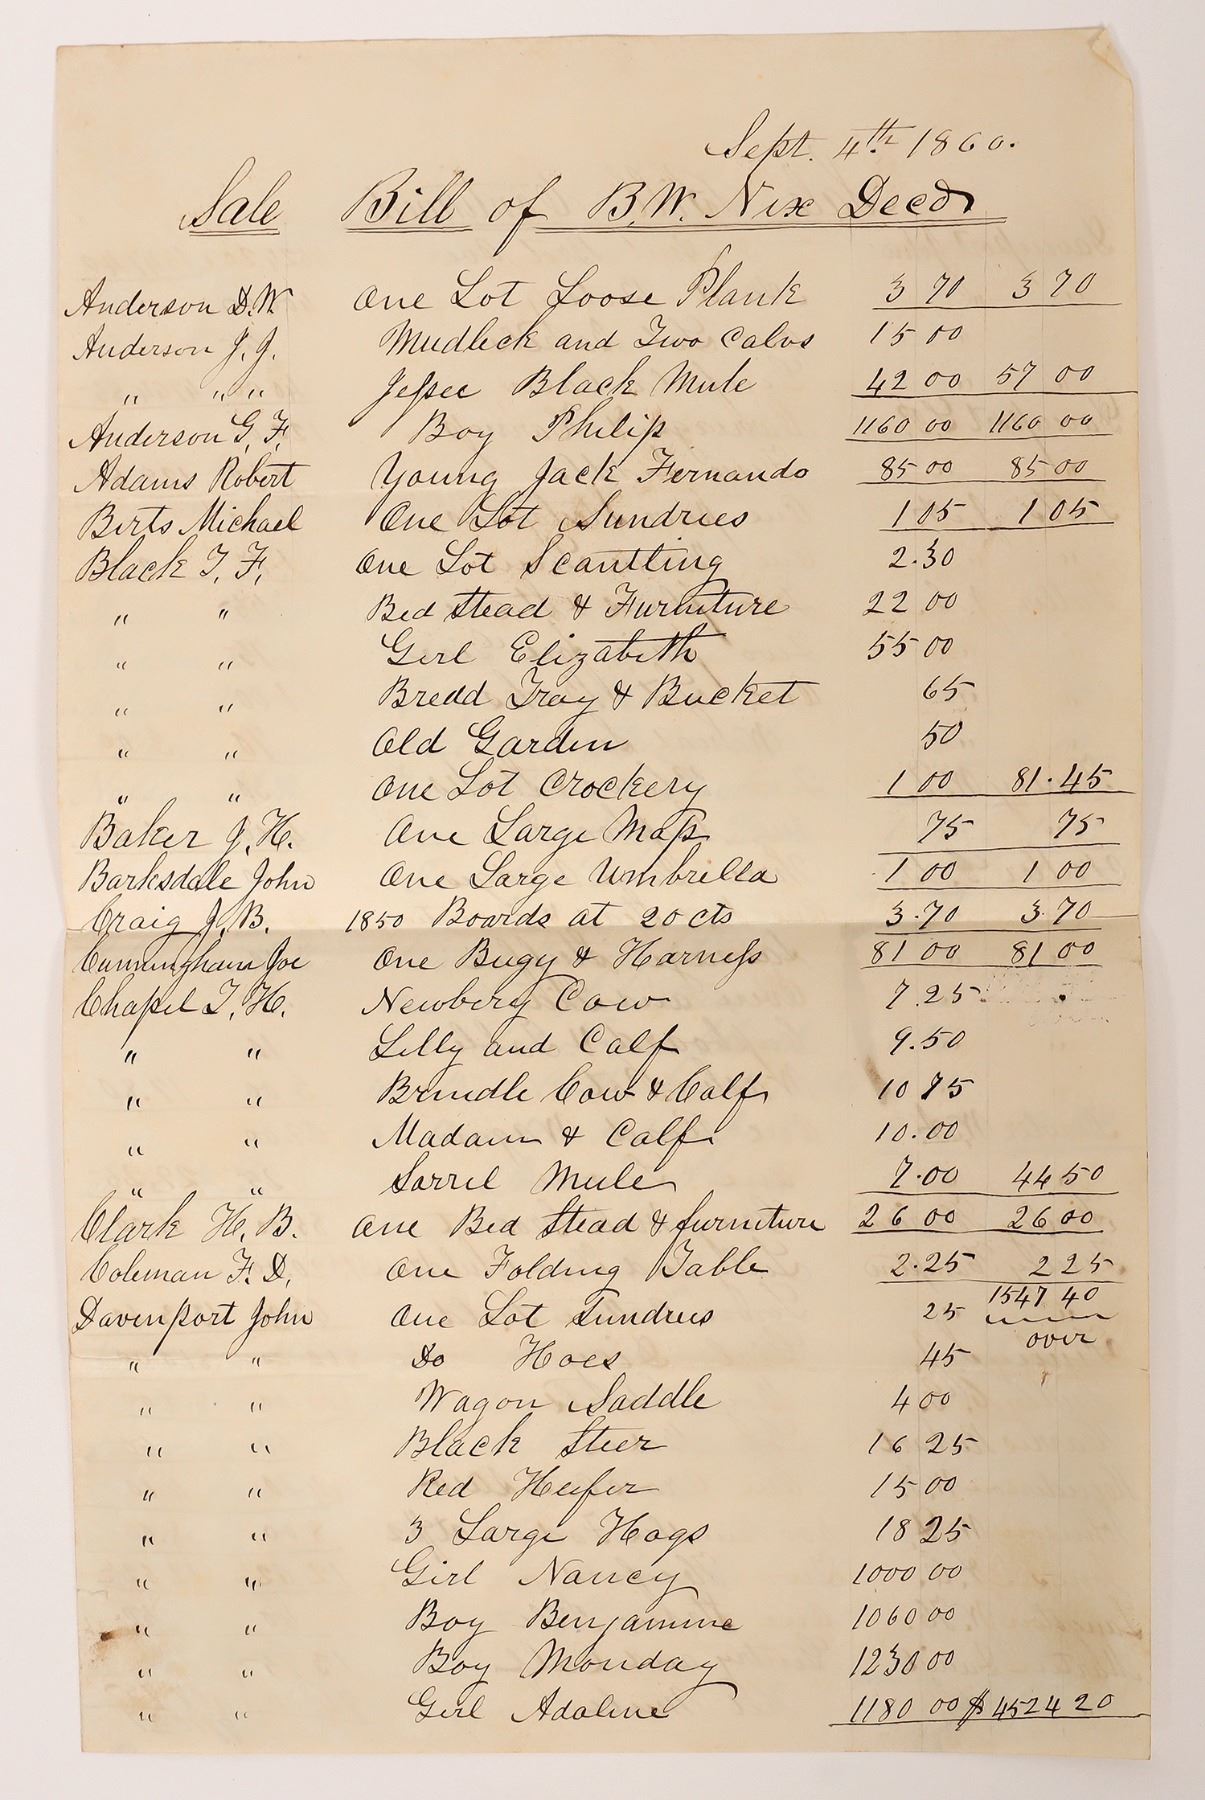 Sept. 4th 1860.
Sale Bill of B.W. Nix Decd
Anderson D.W. One Lot Loose Plank 3 70 3 70
Anderson J. J. Mudlick and Two Calvs 15 00
" " " Jessee Black Mule 42 00 57 00
Anderson G. F. Boy Philip 1160 00 1160 00
Adams Robert Young Jack Fernando 85 00 85 00
Berts Michael One Lot Sundries 1 05 1 05
Black T. F. One Lot Scantling 2.30
" " Bed Stead & Furniture 22 00
" " Girl Elizabeth 55 00
" " Bredd Tray & Bucket 65
" " Old Garden 50
" " One Lot Crockery 1 00 81.45
Baker J. H. One Large Map 75 75
Barksdale John One Large Umbrella 1 00 1 00
Craig J. B. 1850 Boards at 20 cts 3.70 3.70
Cunningham Joe One Bugy & Harness 81 00 81 00
Chapel T. H. Newbery Cow 7.25
" " Lilly and Calf 9.50
" " Brindle Cow & Calf 10 75
" " Madam & Calf 10.00
" " Sorrel Mule 7.00 44 50
Clark H. B. One Bed Stead & furniture 26 00 26 00
Coleman F. D. One Folding Table 2.25 2 25
Davenport John One Lot Sundries 25 1547 40
" " Do Hoes 45 over
" " Wagon Saddle 4 00
" " Black Steer 16 25
" " Red Heifer 15 00
" " 3 Large Hogs 18 25
" " Girl Nancy 1000 00
" " Boy Benjamine 1060 00
" " Boy Monday 1230 00
" " Girl Adaline 1180 00 $4524 20